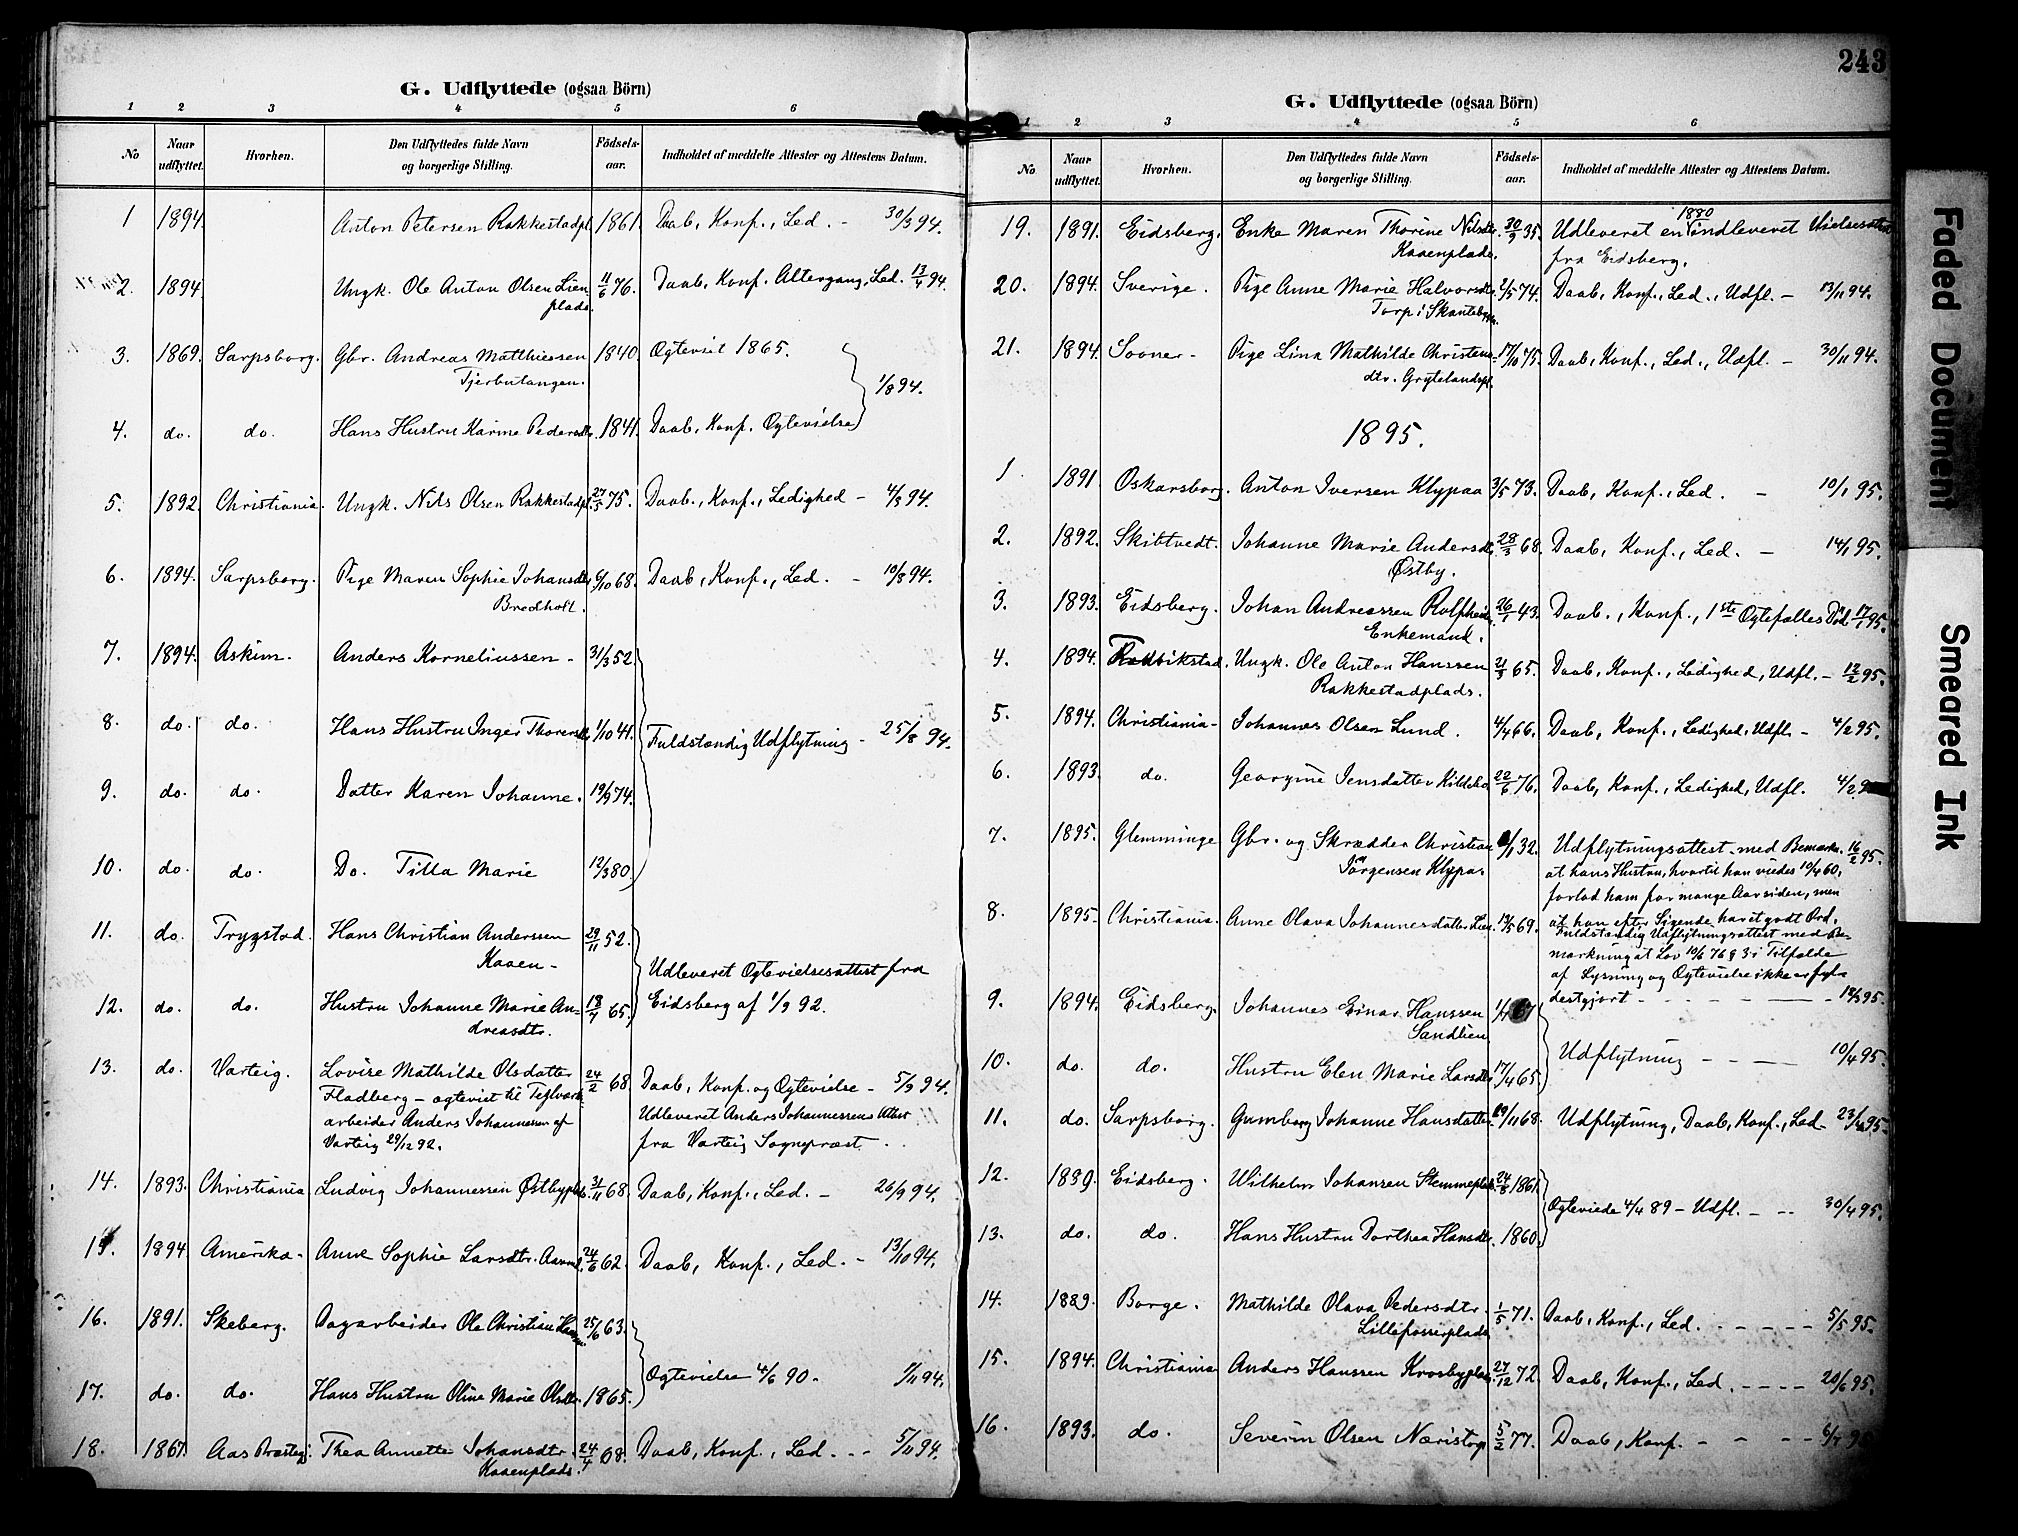 G. Udflyttede (ogsaa Börn)
1 2 3 4 5 6
No Naar udflyttet. Hvorhen. Den Udflyttedes fulde Navn og borgerlige Stilling. Födsels-aar. Indholdet af meddelte Attester og Attestens Datum.
1 1894. Anton Petersen Rakkestadpl. 1861. Daab, Konf., Led. - 30/3 94.
2. 1894. Ungk. Ole Anton Olsen Lien 11/6 76. Daab, Konf. Altergang, Led. 13/4 94.
plads.
3. 1869. Sarpsborg. Gbr. Andreas Matthiesen 1840. Ogteviet 1865.
Tjerbutangen. 1/8 94.
4. do. do. Hans Hustru Karine Pedersdtr. 1841. Daab, Konf. Ogtevielse
5. 1892. Christiania. Ungk. Nils Olsen Rakkestadpl. 27/5 75. Daab., Konf., Ledighed - 4/8 94.
6. 1894. Sarpsborg. Pige Maren Sophie Johansdtr. 6/10 68. Daab, Konf., Led. - 10/8 94.
Bredholt.
7. 1894. Askim. Anders Korneliussen - 31/3 52.
8. do. do. Hans Hustru Inger Thorersdtr. 1/10 41. Fuldstændig Udflytning - 25/8 94.
9. do. do. Datter Karen Johanne. 19/9 74.
10. do. do. Do. Tilla Marie 12/3 80.
11. do. Trygstad. Hans Christian Anderssen 29/11 52.
Kaaen - Udleveret Ogtevielsesattest fra
12. do. do. Hustru Johanne Marie An- 18/7 65. Eidsberg af 1/9 92.
dreasdtr.
13. do. Varteig. Lovise Mathilde Olsdatter 24/2 68 Daab, Konf. og Ogtevielse - 5/9 94.
Fladberg - ogteviet til Teglværk- Udleveret Anders Johannessens Attest
arbeider Anders Johannessen af fra Varteig Sognepræst.
Varteig 29/12 92.
14. 1893. Christiania Ludvig Johannessen Østbypl. 31/11 68. Daab, Konf., Led. - 26/9 94.
15. 1894 Amerika. Anne Sophie Larsdtr. 24/6 62. Daab, Konf., Led. - 13/10 94.
16. 1891. Skeberg. Dagarbeider Ole Christian 25/6 63.
Ogtevielse 4/6 90. 1/11 94.
17. do. do. Hans Hustru Oline Marie Olsdtr. 1865.
18. 1867. Aas Præstegj. Thea Annette Johansdtr. 24/4 68. Daab, Konf., Led. - 5/11 94.
Kaaenplads.
243
G. Udflyttede (ogsaa Börn)
1 2 3 4 5 6
No Naar udflyttet. Hvorhen. Den Udflyttedes fulde Navn og borgerlige Stilling. Födsels-aar. Indholdet af meddelte Attester og Attestens Datum.
19. 1891. Eidsberg. Enke Maren Thorine Nilsdtr. 30/9 35. Udleveret en 1880 indleveret Vielsesattest
Kaaenplads. fra Eidsberg.
20. 1894. Sverige. Pige Anne Marie Halvorsdtr. 2/5 74. Daab, Konf., Led., Udfl. - 13/11 94.
Torp i
21. 1894. Sooner - Pige Lina Mathilde Christens- 17/10 75. Daab, Konf., Led., Udfl. - 30/11 94.
dtr. Grytelandspl.
1895.
1 1891 Oskarsborg. Anton Iversen Klypaa 3/5 73. Daab, Konf., Led. - 10/1 95.
2. 1892. Skibtvedt. Johanne Marie Andersdtr. 28/3 68. Daab, Konf., Led. - 14/1 95.
Østby.
3. 1893. Eidsberg. Johan Andreassen 26/1 43. Daab., Konf., 1ste Ogtefælles Död 17/1 95.
Enkemand.
4. 1894. Fredrikstad. Ungk. Ole Anton Hanssen 21/3 65. Daab, Konf., Ledighed, Udfl. - 12/2 95.
Rakkestadplads.
5. 1894. Christiania - Johannes Olsen Lund. 4/4 66. Daab, Konf., Ledighed, Udfl. - 4/2 95.
6. 1893. do. Georgine Jensdatter 22/6 76. Daab, Konf., Ledighed, Udfl. 4/2 9
7. 1895. Glemminge Gbr. og Skrædder Christian /11 32. Udflytningsattest med Bemærkn. 16/2 95.
Jörgensen Klypa. at hans Hustru, hvortil han viedes 10/4 60,
forlod ham for mange Aar siden, men
at han efter Sigende har et godt Ord.
8. 1895. Christiania. Anne Olava Johannesdatter Lien 19/5 69. Fuldstændig Udflytningsattest med Be-
mærkning at Lov 10/6 76 § 3 i Tilfælde
af Lysning og Ogtevielse ikke er fyl-
destgjort - - - - 18/3 95.
9. 1894. Eidsberg. Johannes Einar Hanssen
Sandlien Udflytning - - - 10/4 95.
10. do. do. Hustru Elen Marie Larsdtr. 17/4 65
11. do. Sarpsborg. Gunborg Johanne Hansdatter 29/11 68. Udflytning, Daab, Konf., Led. 23/4 95.
12. 1889. Eidsberg. Wilhelm Johansen Stemmeplads. 24/8 1861
Ogteviede 4/4 89 - Udfl. - - - 30/4 95.
13. do. do. Hans Hustru Dorthea Hansdtr. 1860.
14. 1889. Borge. Mathilde Olava Pedersdtr. 1/5 71. Daab, Konf., Led. - - - - - 5/5 95.
Lillefosserplads
15. 1894. Christiania Anders Hanssen Krosbyplads. 27/12 72. Daab, Konf., Led. - - - - 20/6 95.
16. 1893. do. Severin Olsen Næristorp 5/2 77. Daab, Konf. - - - - 6/7 9
Faded Document
Smeared Ink